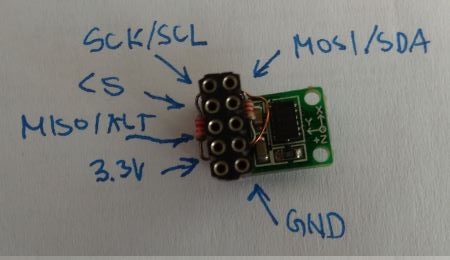 SCK/SCL
MOSI/SDA
CS
MISO/ALT
3.3V
GND
X
Y
+Z